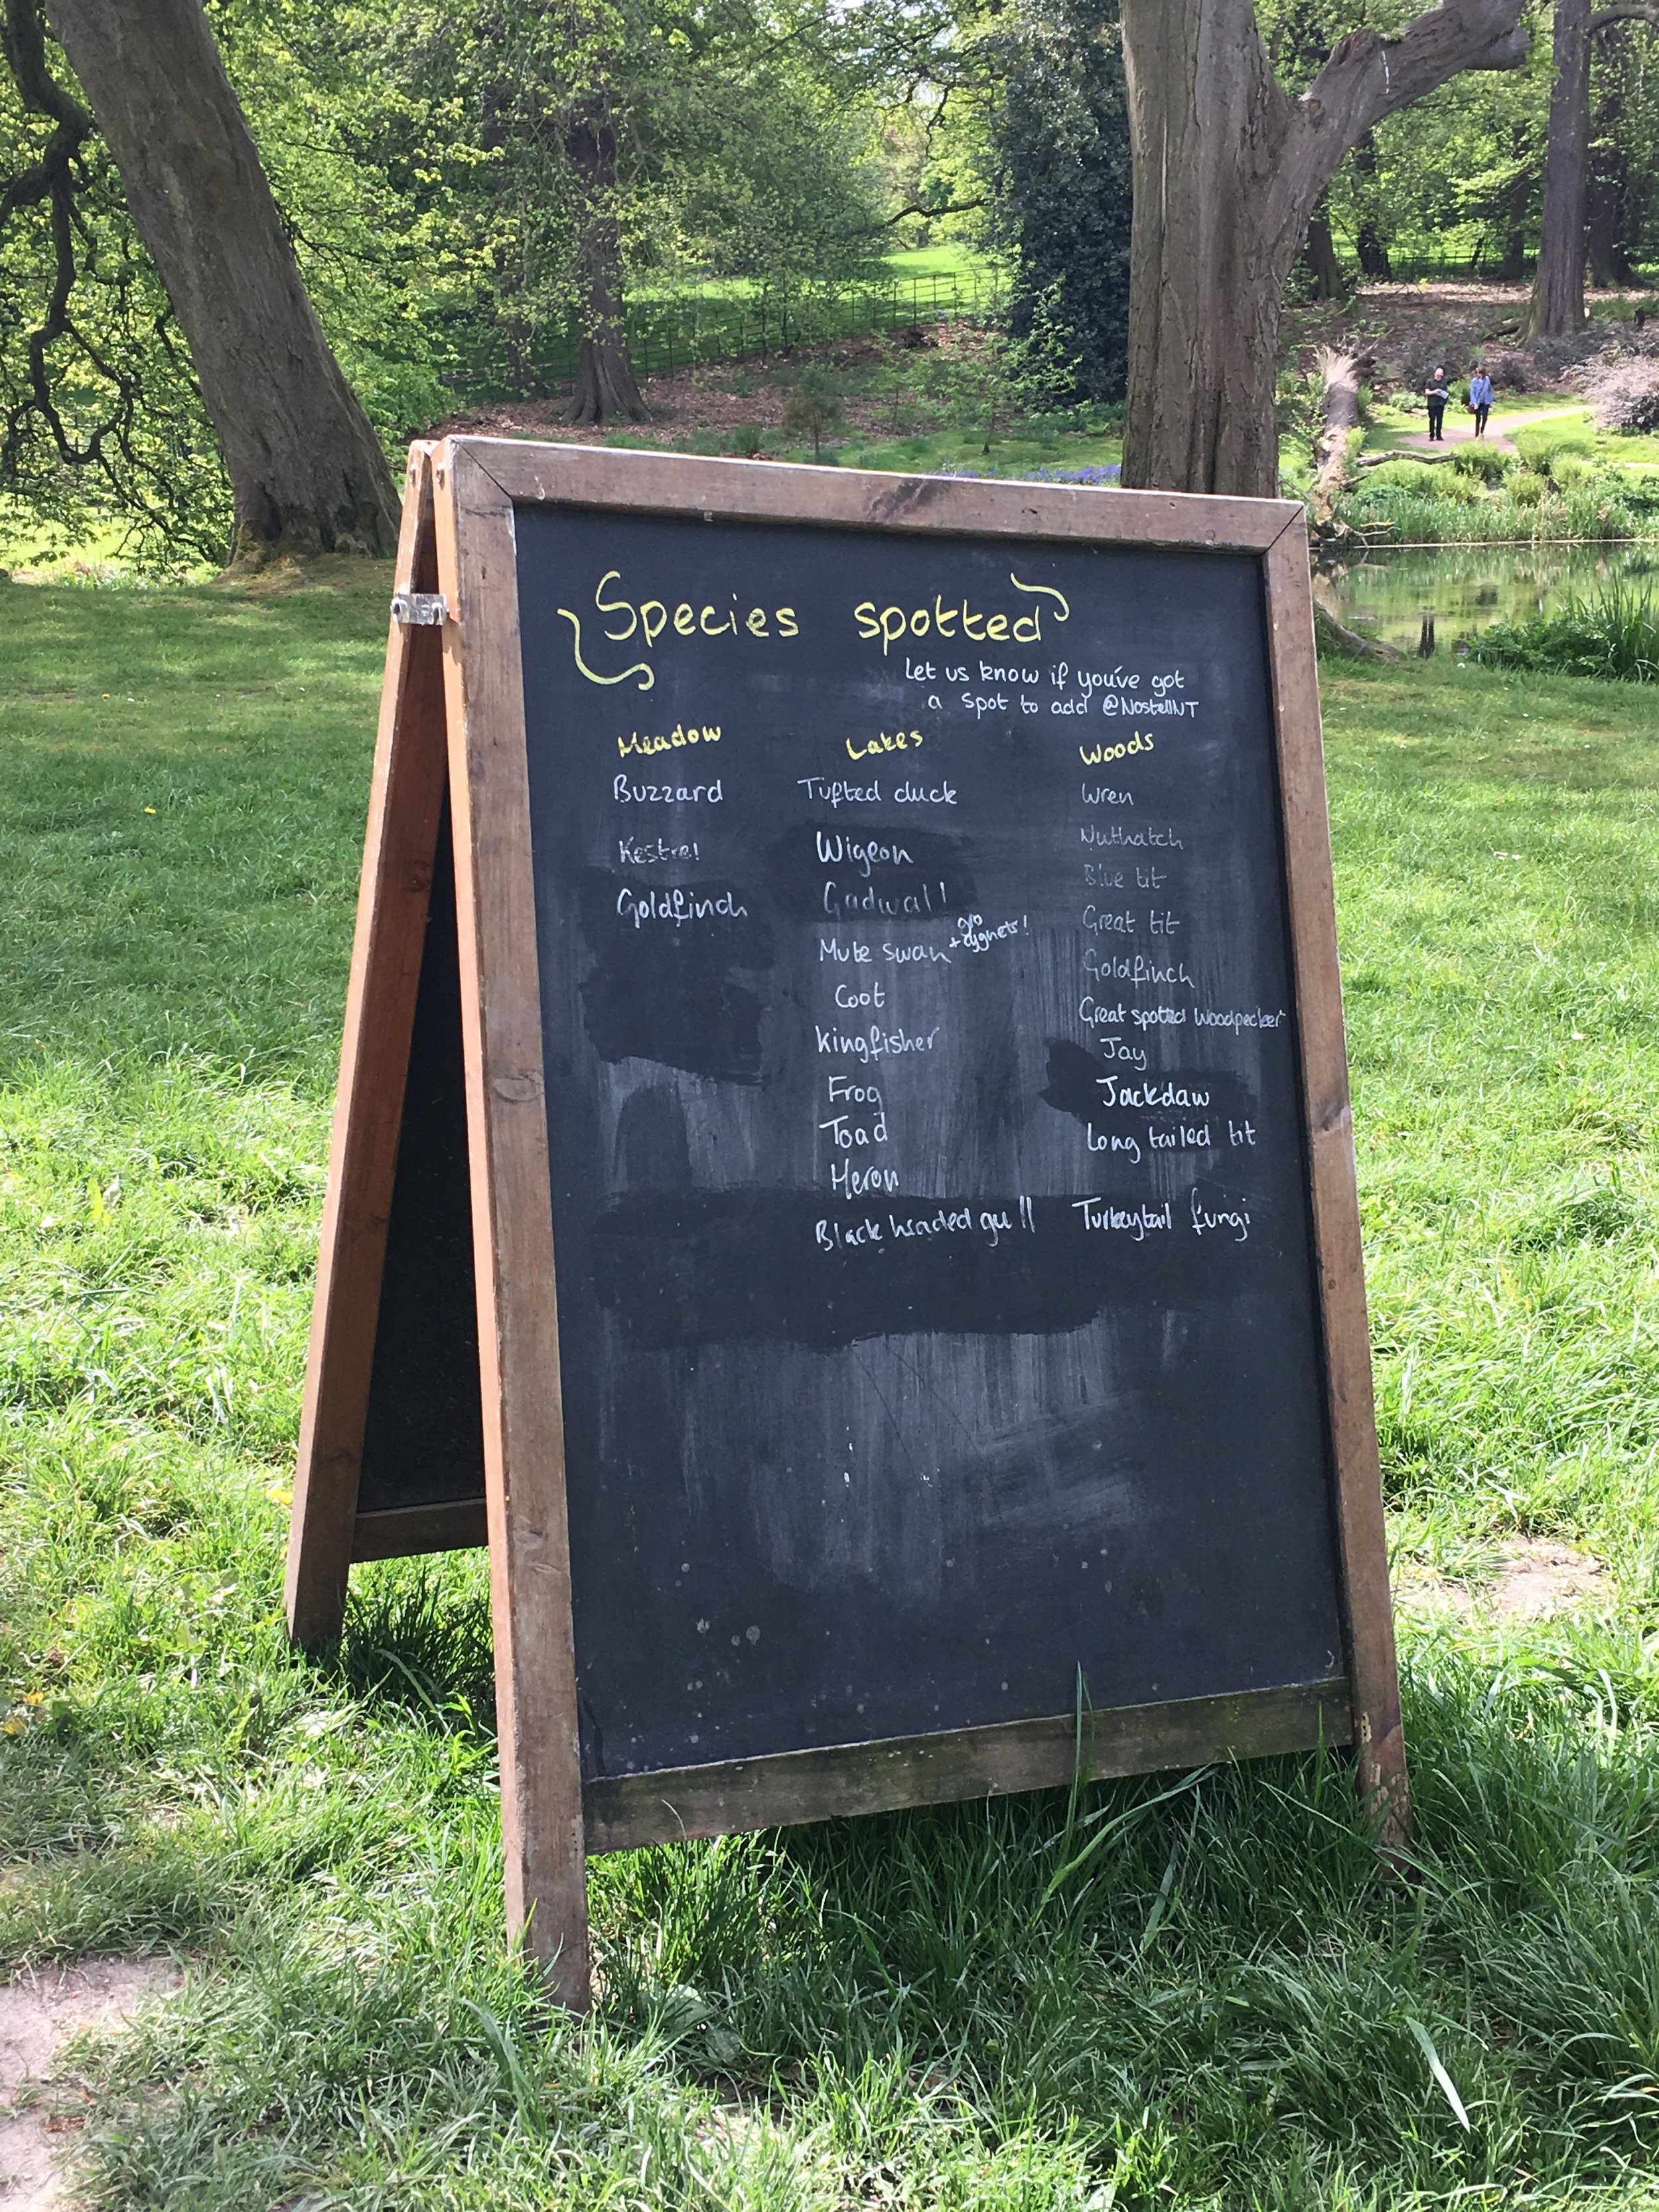 Species spotted
Let us know if you've got
a spot to add @NostellNT
Meadow
Buzzard
Kestrel
Goldfinch
Lakes
Tufted duck
Wigeon
Gadwall
Mute swan + cygnets!
Coot
Kingfisher
Frog
Toad
Heron
Black headed gull
Woods
Wren
Nuthatch
Blue tit
Great tit
Goldfinch
Great spotted Woodpecker
Jay
Jackdaw
Long tailed tit
Turkeytail fungi